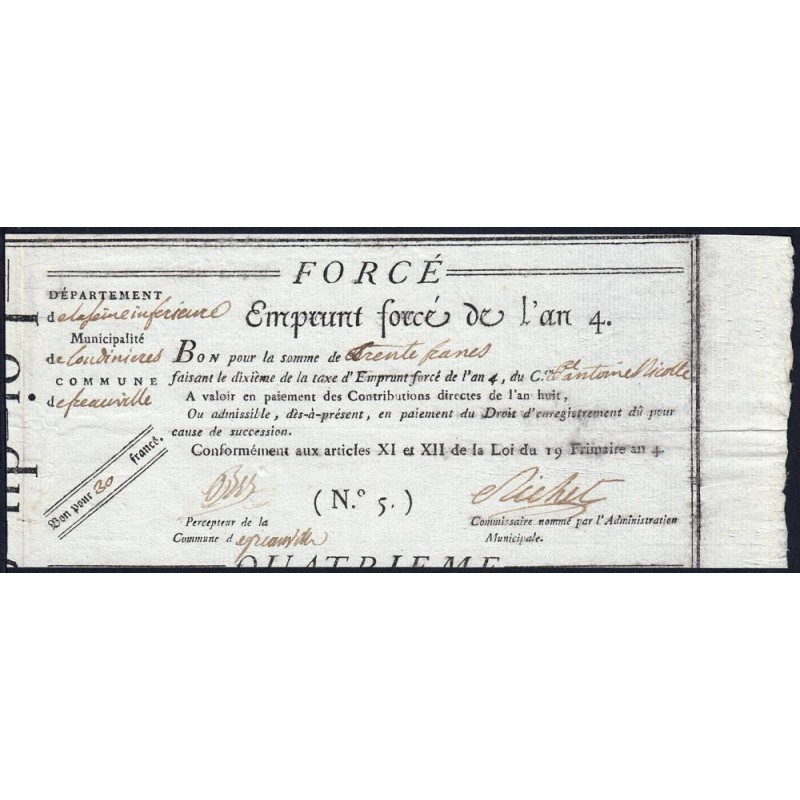 FORCÉ
Emprunt forcé de l'an 4.
DÉPARTEMENT
de la Seine inferieure
Municipalité
de Loudinieres
COMMUNE
de freauville
BON pour la somme de Trente francs
faisant le dixième de la taxe d'Emprunt forcé de l'an 4, du C.en antoine Nicolle
A valoir en paiement des Contributions directes de l'an huit,
Ou admissible, dès-à-présent, en paiement du Droit d'enregistrement dû pour
cause de succession.
Conformément aux articles XI et XII de la Loi du 19 Frimaire an 4.
Bon pour 30 francs.
(N.o 5.)
Richet
Percepteur de la
Commune d e freauville
Commissaire nommé par l'Administration
Municipale.
QUATRIEME